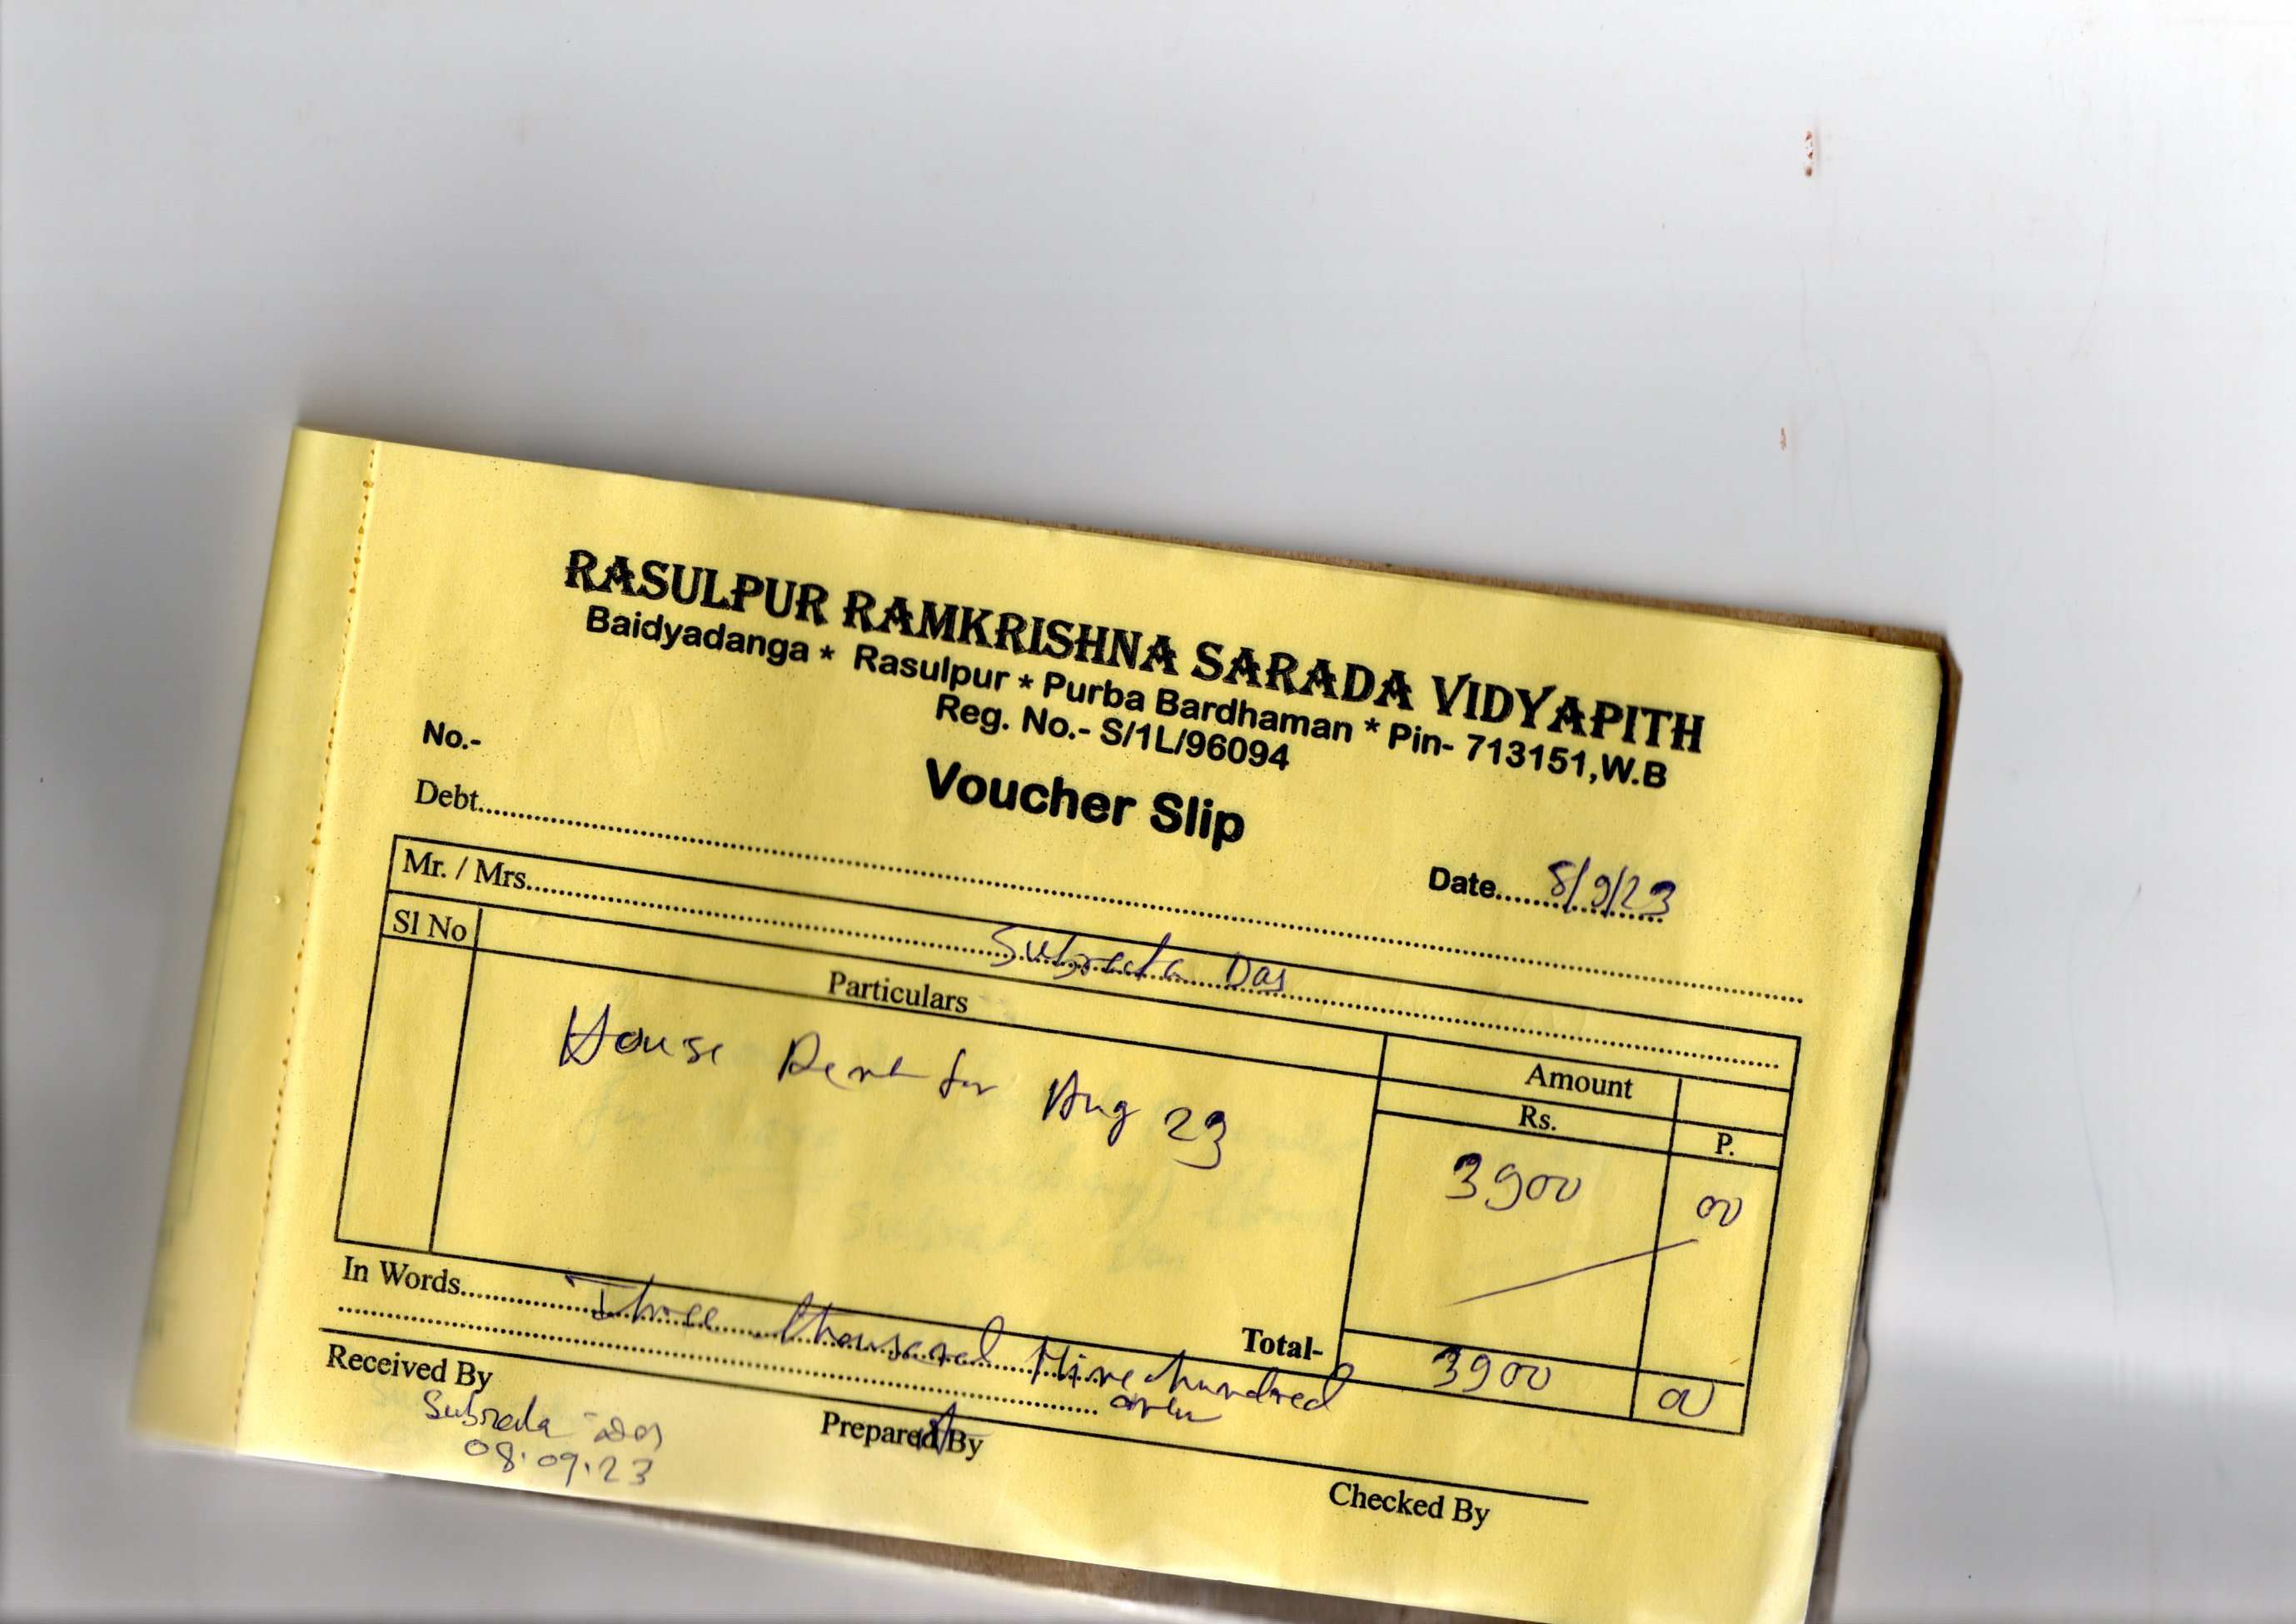 RASULPUR RAMKRISHNA SARADA VIDYAPITH
Baidyadanga * Rasulpur * Purba Bardhaman * Pin- 713151,W.B
Reg. No.- S/1L/96094
No.-
Voucher Slip
Date.... 8/9/23
Debt........
Mr. / Mrs........ Subrata Das
Sl No Particulars Amount
Rs. P.
House Rent for Aug 23 3900 00
Total- 3900 00
In Words........ Three thousand Nine hundred
Received By Prepared By Checked By
Subrata Das
08.09.23